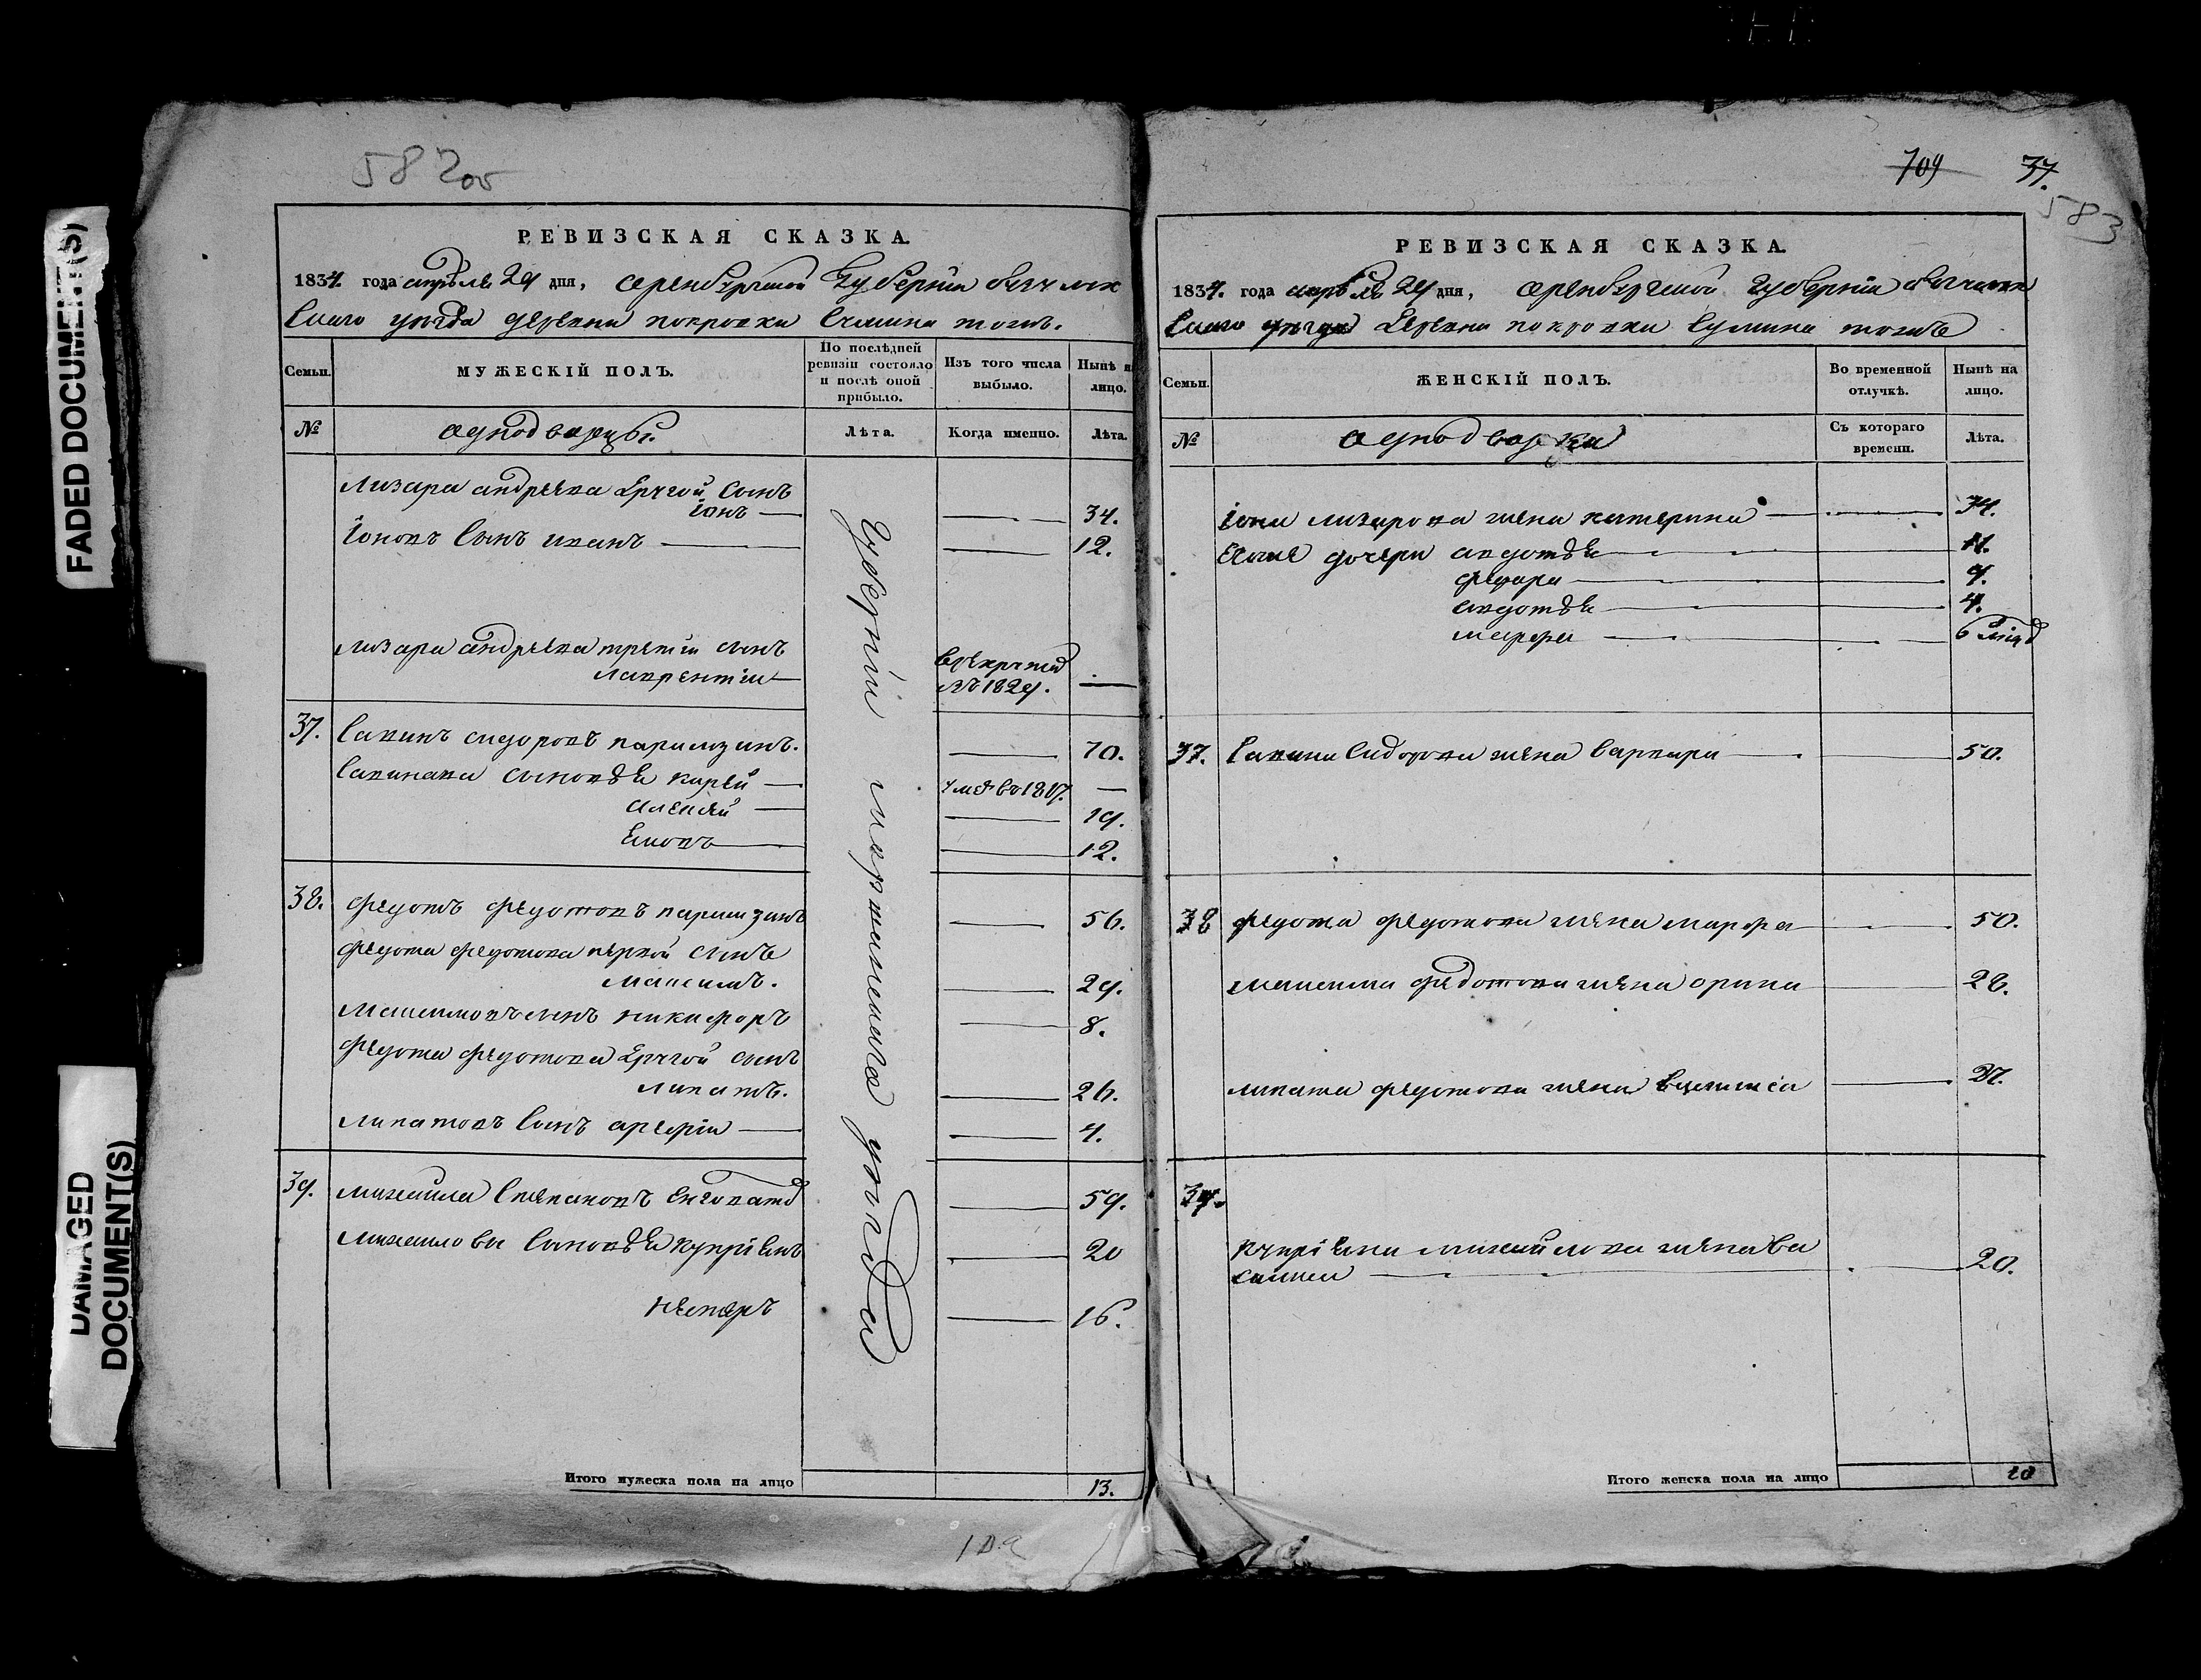 FADED DOCUMENT(S)
DAMAGED DOCUMENT(S)
582об
РЕВИЗСКАЯ СКАЗКА.
1834. года апреля 29 дня, оренбургской губернии
уезда деревни покровки тожъ.
Семьи.
МУЖЕСКІЙ ПОЛЪ.
По послѣдней ревизіи состояло и послѣ оной прибыло.
Изъ того числа выбыло.
Нынѣ на лицо.
№
однодворцы.
Лѣта.
Когда именно.
Лѣта.
лизара андреева другой сынъ
іонъ — 34.
іоновъ сынъ иванъ — 12.
лизара андреева третій сынъ
лаврентіи — въ 1829. —
37. савинъ сидоровъ 70.
савинавы сыновья карпей — 1817. —
алексей — 19.
— 12.
38. федотъ федотовъ 56.
федота федотова первой сынъ
максимъ. 29.
максимовъ сынъ никифоръ 8.
федота федотова другой сынъ
липатъ. 26.
липатовъ сынъ арефіи — 4.
39. михаила степановъ 59.
михаиловы сыновья купріянъ 20
нестеръ 16.
губерніи уезда
Итого мужеска пола на лицо 13.
709 37.
583
РЕВИЗСКАЯ СКАЗКА.
1834. года апреля 29 дня, оренбургской губерніи
уезда деревни покровки тожъ
Семьи.
ЖЕНСКІЙ ПОЛЪ.
Во временной отлучкѣ.
Нынѣ на лицо.
№
однодворки
Съ котораго времени.
Лѣта.
іона лизарова жена катерина — 34.
дочери авдотья — 11.
федора —
авдотья — 4.
— 6
37. савина сидорова жена варвара — 50.
38 федота федотова жена марфа — 50.
максима федотова жена орина 28.
липата федотова жена 27.
39.
купріяна михаилова жена ва
силиса — 20.
Итого женска пола на лицо 10